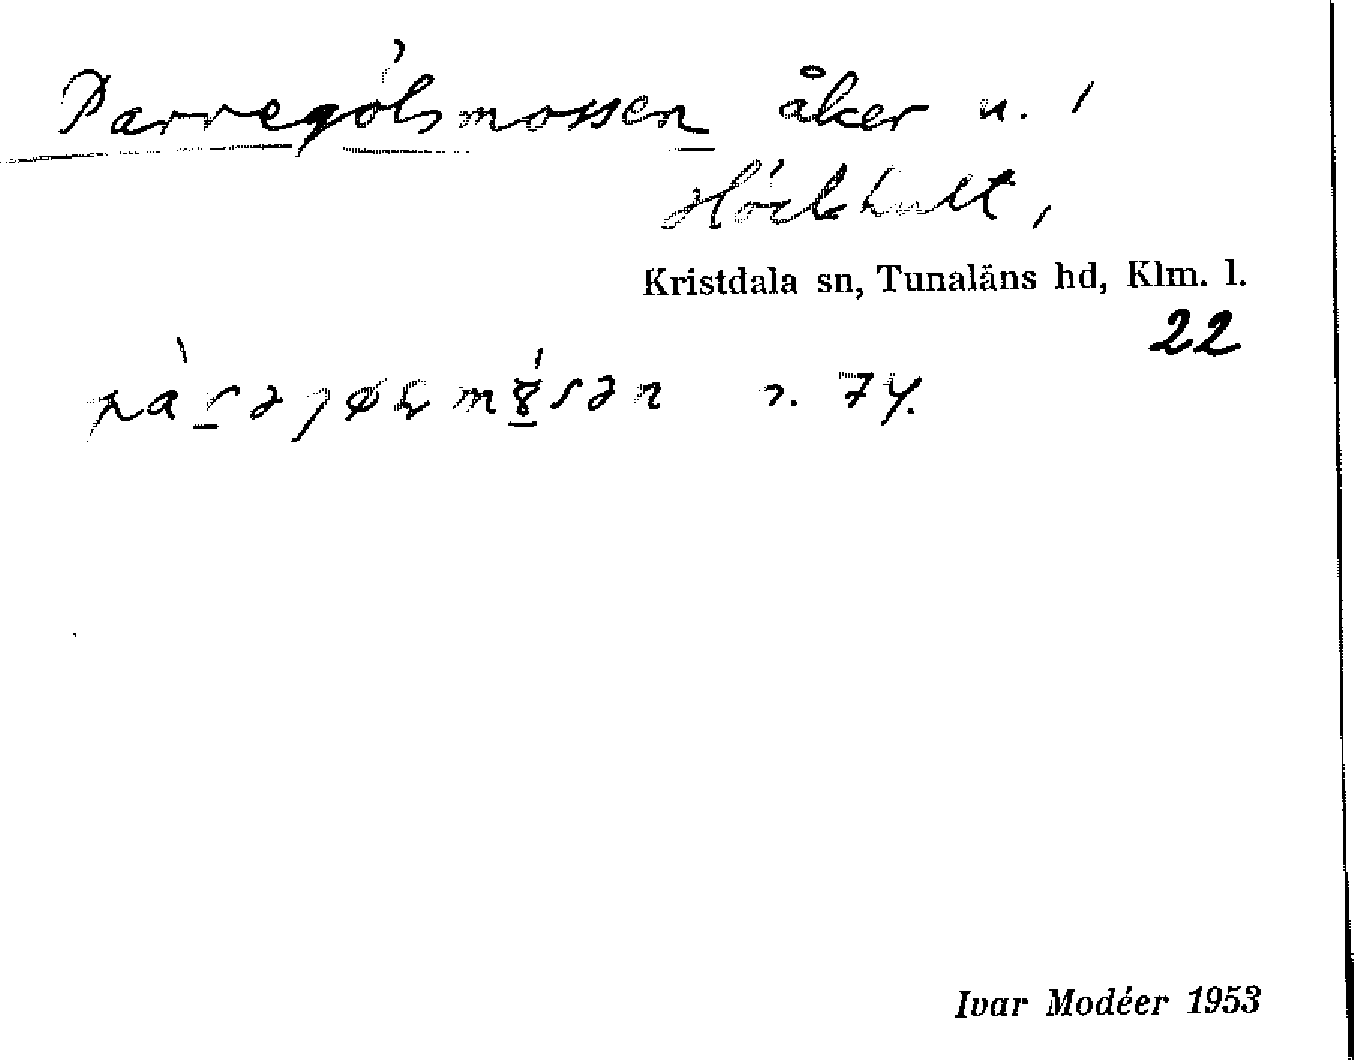 Parregölsmossen åker u. /
Höckhult,
Kristdala sn, Tunaläns hd, Klm. l.
22
r. 74.
Ivar Modéer 1953